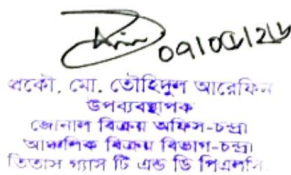 প্রকৌ. মো. তৌহিদুল আরেফিন
উপব্যবস্থাপক
জোনাল বিক্রয় অফিস-চন্দ্রা
আঞ্চলিক বিক্রয় বিভাগ-চন্দ্রা
তিতাস গ্যাস টি এন্ড ডি পিএলসি.